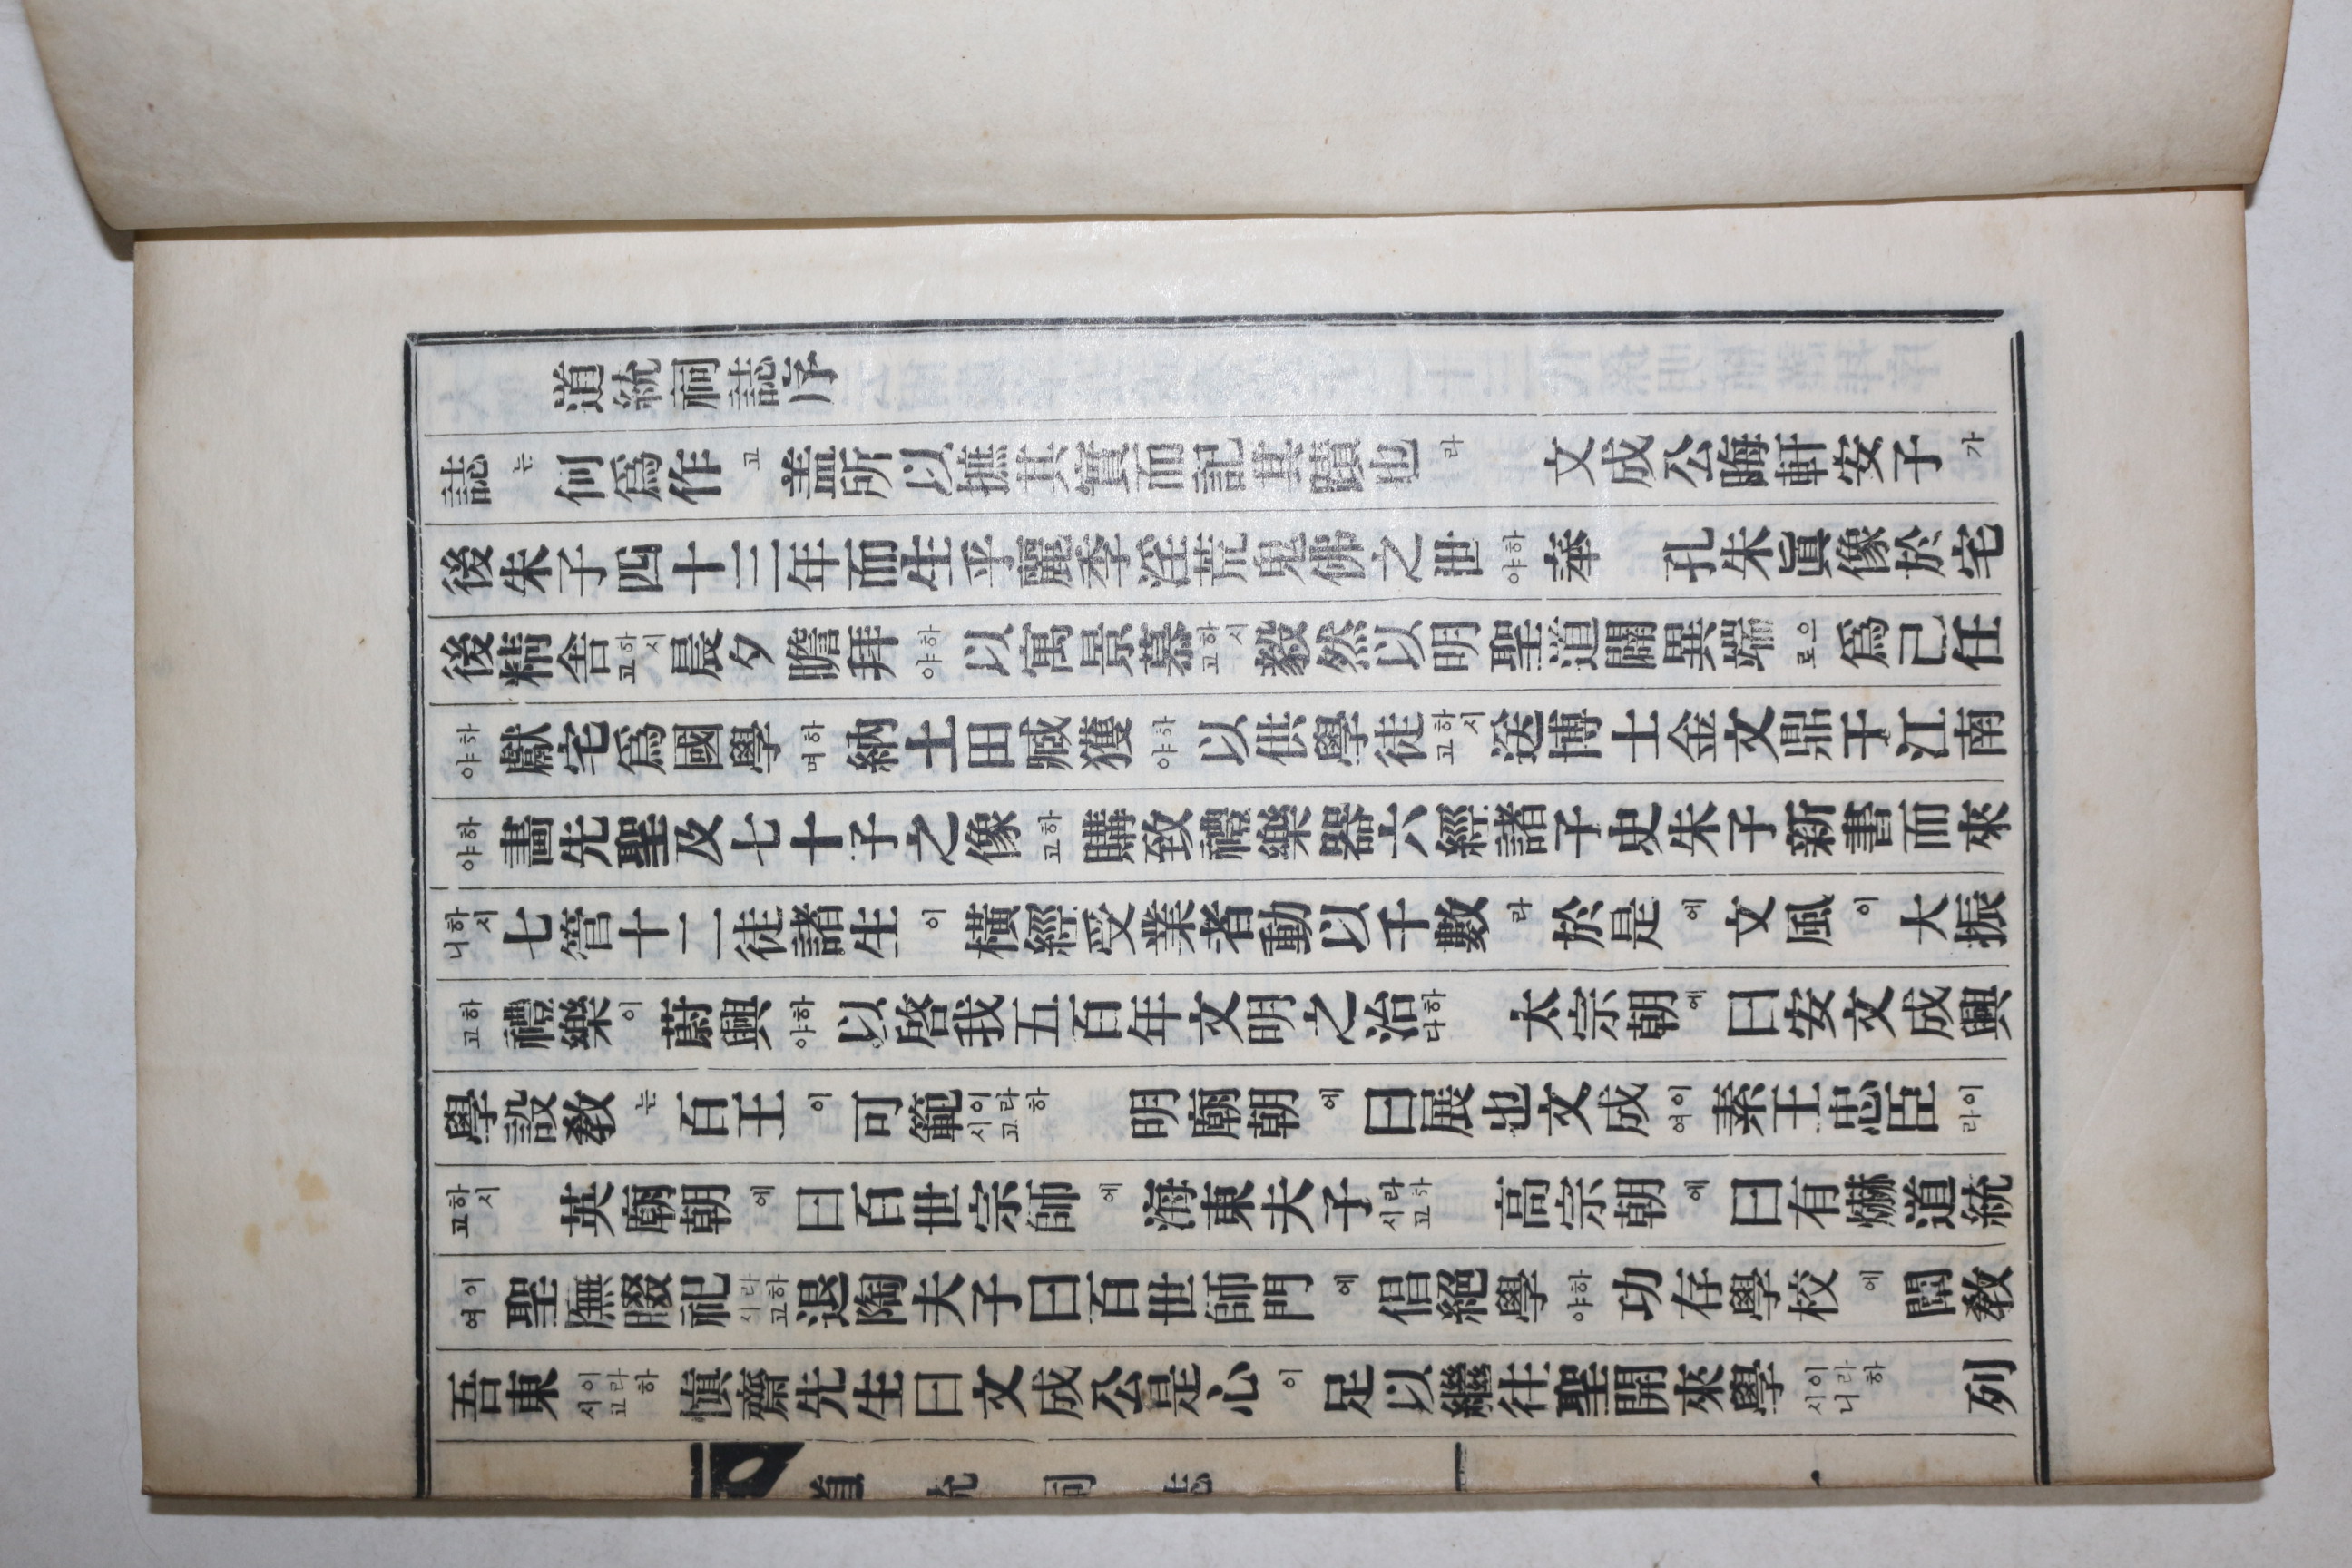 道統祠誌序
誌는何爲作고盖所以摭其實而記其蹟也라 文成公晦軒安子가
後朱子四十三年而生乎麗季淫荒鬼佛之世하야奉 孔朱眞像於宅
後精舍하시고晨夕瞻拜하야以寓景慕하시고毅然以明聖道闢異端으로爲己任
하야獻宅爲國學하며納土田臧獲하야以供學徒하시고送博士金文鼎于江南
하야畵先聖及七十子之像하고購致禮樂器六經諸子史朱子新書而來
하시니七管十二徒諸生이橫經受業者動以千數라於是에文風이大振
하고禮樂이蔚興하야以啓我五百年文明之治하다 太宗朝에曰安文成興
學設敎는百王이可範이라하시고 明廟朝에曰展也文成이여素王忠臣이라
하시고 英廟朝에曰百世宗師에海東夫子라하시고 高宗朝에曰有爀道統
이여聖廡腏祀라하시고退陶夫子曰百世師門에倡絕學하야功存學校에闡敎
吾東이라하시고愼齋先生曰文成公是心이足以繼往聖開來學이라하시니 列
道統祠誌 一